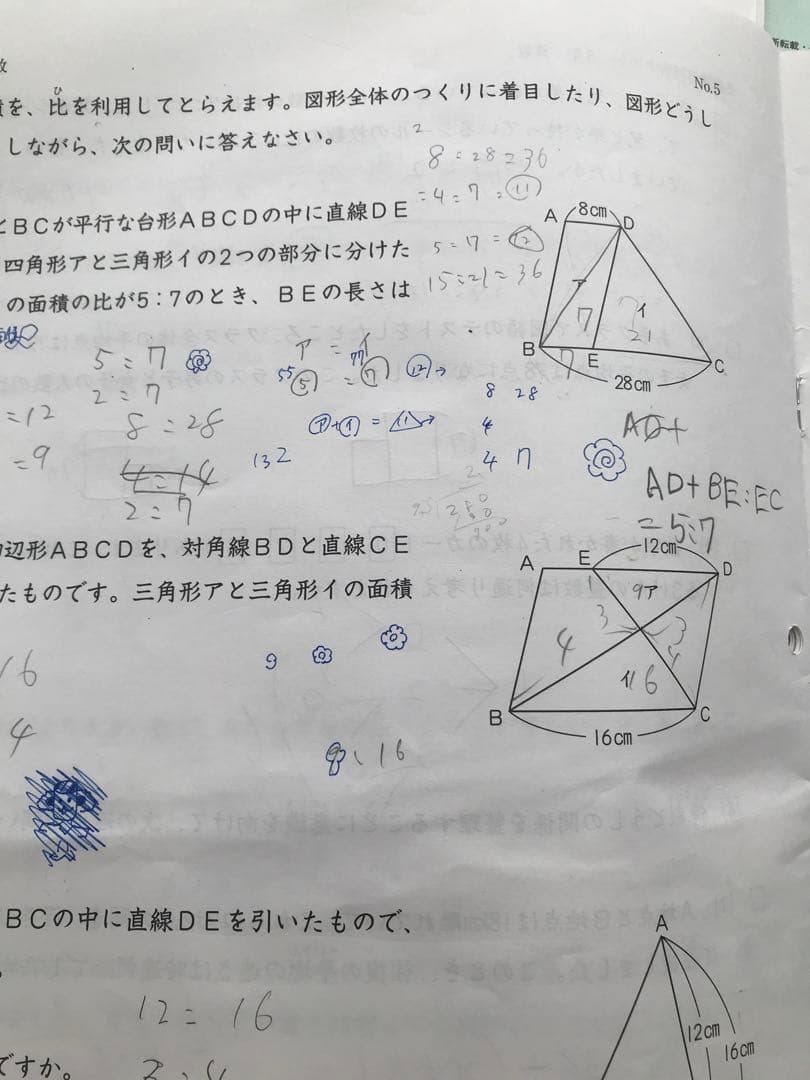 No.5
所転載・
数
積を、比を利用してとらえます。図形全体のつくりに着目したり、図形どうし
ひ
しながら、次の問いに答えなさい。
2
8:28=36
=4:7=⑪
とBCが平行な台形ABCDの中に直線DE
四角形アと三角形イの2つの部分に分けた
5:7=⑫
15:21=36
の面積の比が5:7のとき、BEの長さは
A 8cm D
ア
7 イ
21
B 7 E C
28cm
5:7
2:7
=12
8:28
=9
4:14
2:7
ア=イ
55 77
⑤=⑦ ⑫→
8 28
㋐+㋑=11→
4
4 7
132
AD+
AD+BE:EC
=5:7
12cm
辺形ABCDを、対角線BDと直線CE
たものです。三角形アと三角形イの面積
A E D
9ア
3 3
4 4
イ16
B C
16cm
16
4
9
9、16
BCの中に直線DEを引いたもので、
12=16
ですか。
3:4
A
12cm
16cm